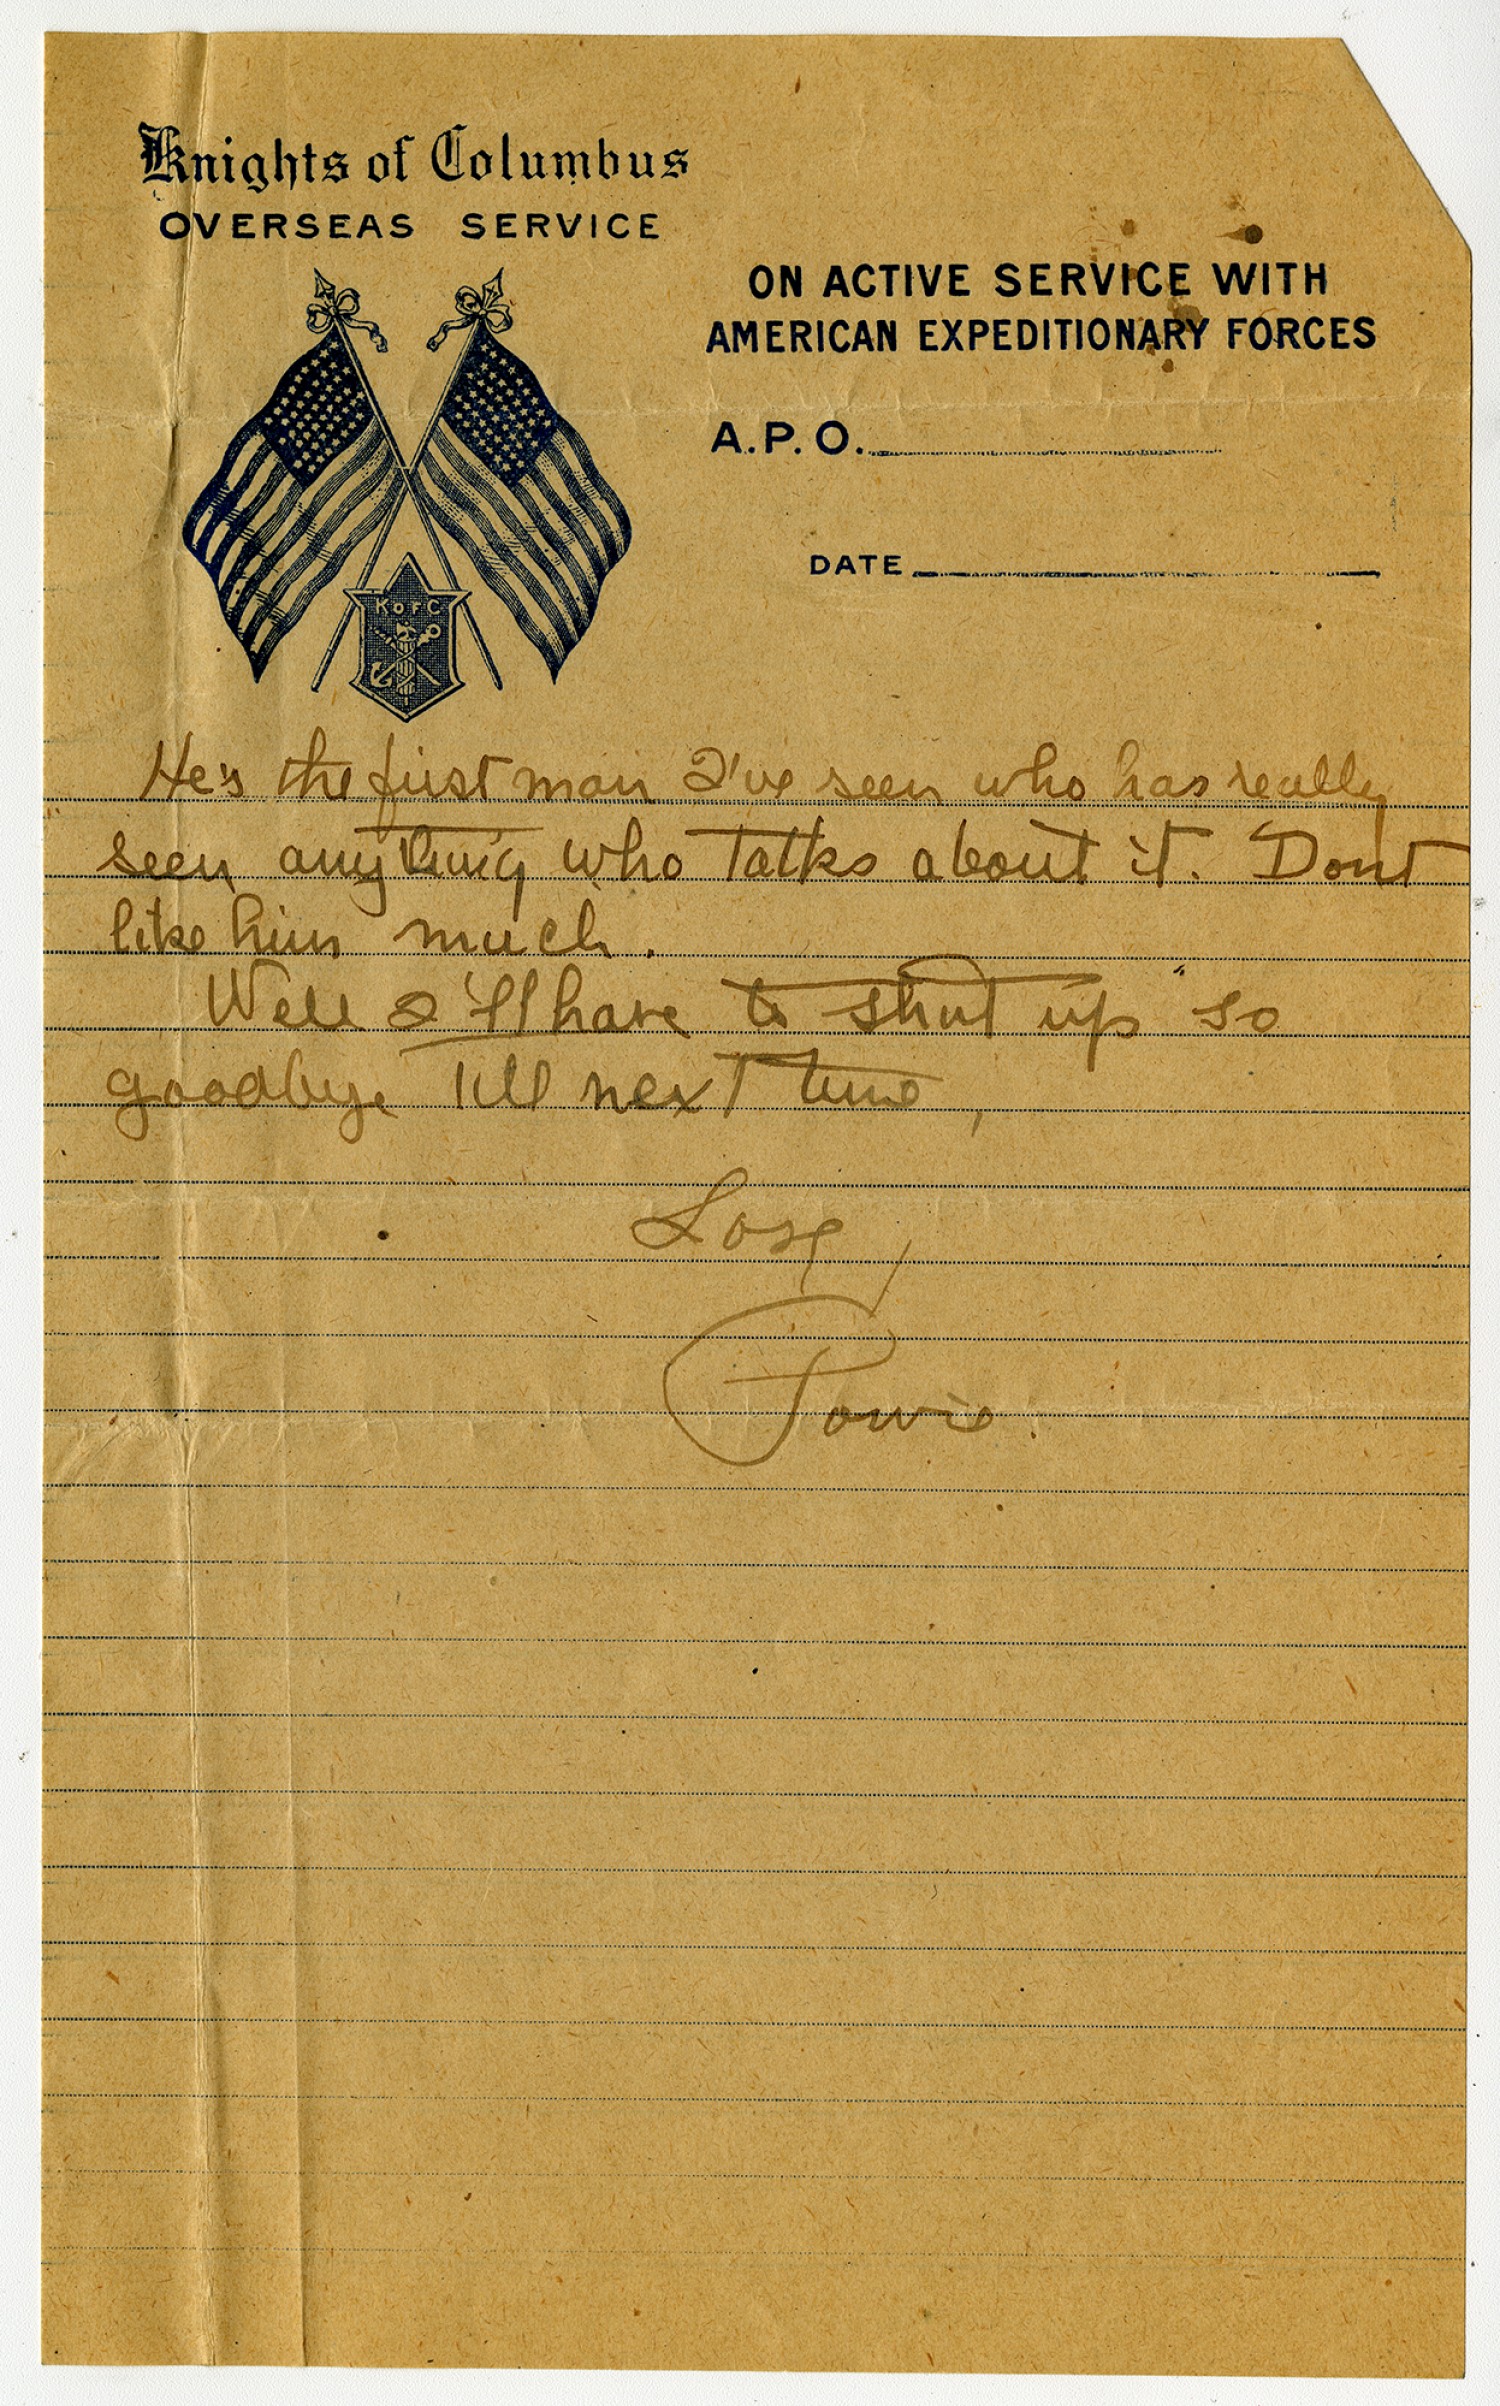 Knights of Columbus
OVERSEAS SERVICE
ON ACTIVE SERVICE WITH
AMERICAN EXPEDITIONARY FORCES
A.P.O.
DATE
K OF C
He's the first man I've seen who has really
seen anything who talks about it. Dont
like him much.
Well I'll have to shut up so
goodbye till next time,
Love,